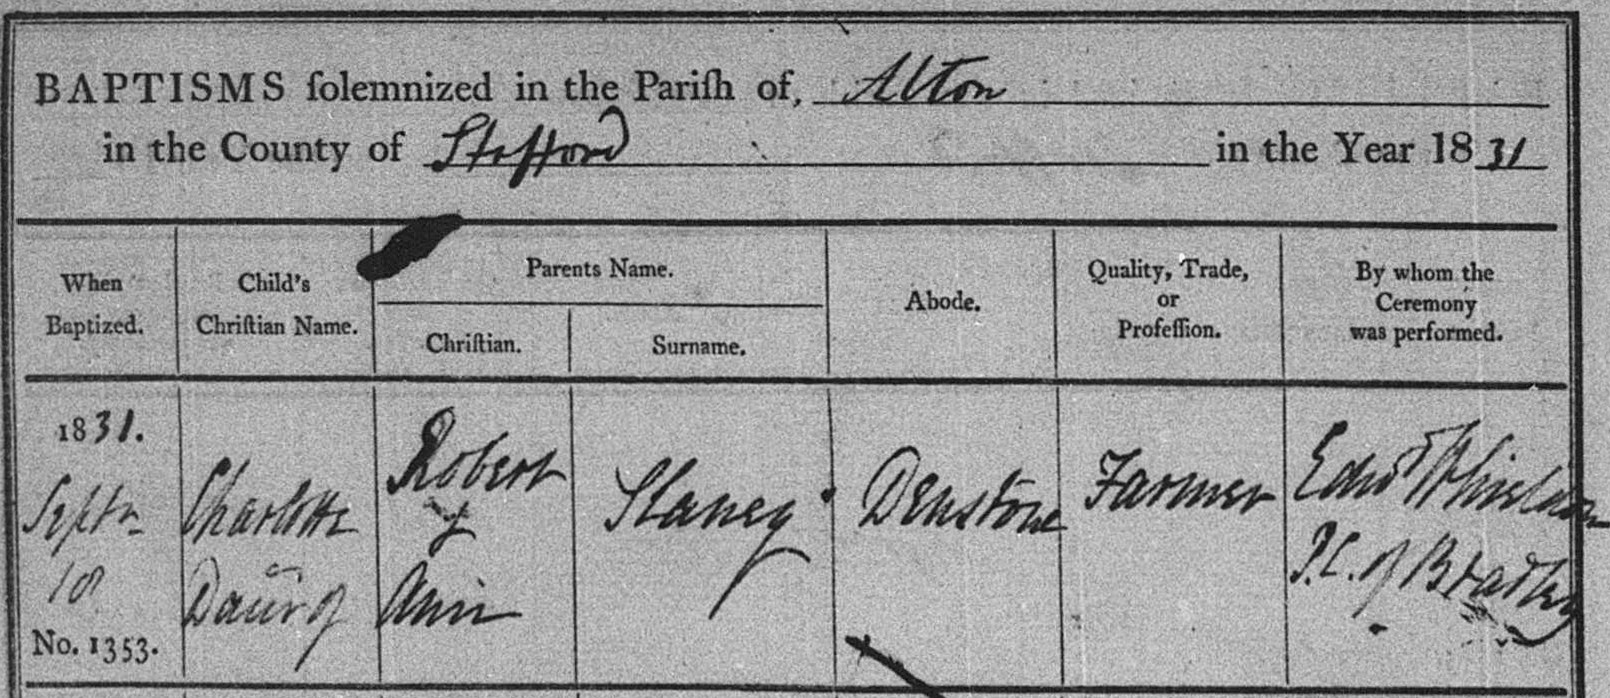 BAPTISMS ſolemnized in the Pariſh of, Alton
in the County of Stafford in the Year 1831
When
Baptized.
Child's
Chriſtian Name.
Parents Name.
Chriſtian.
Surname.
Abode.
Quality, Trade,
or
Profeſſion.
By whom the
Ceremony
was performed.
1831.
Septr
18
No. 1353.
Charlotte
Daur of
Robert
&
Ann
Slaney
Denstone
Farmer
Edwd Whieldon
P.C. of Bradley